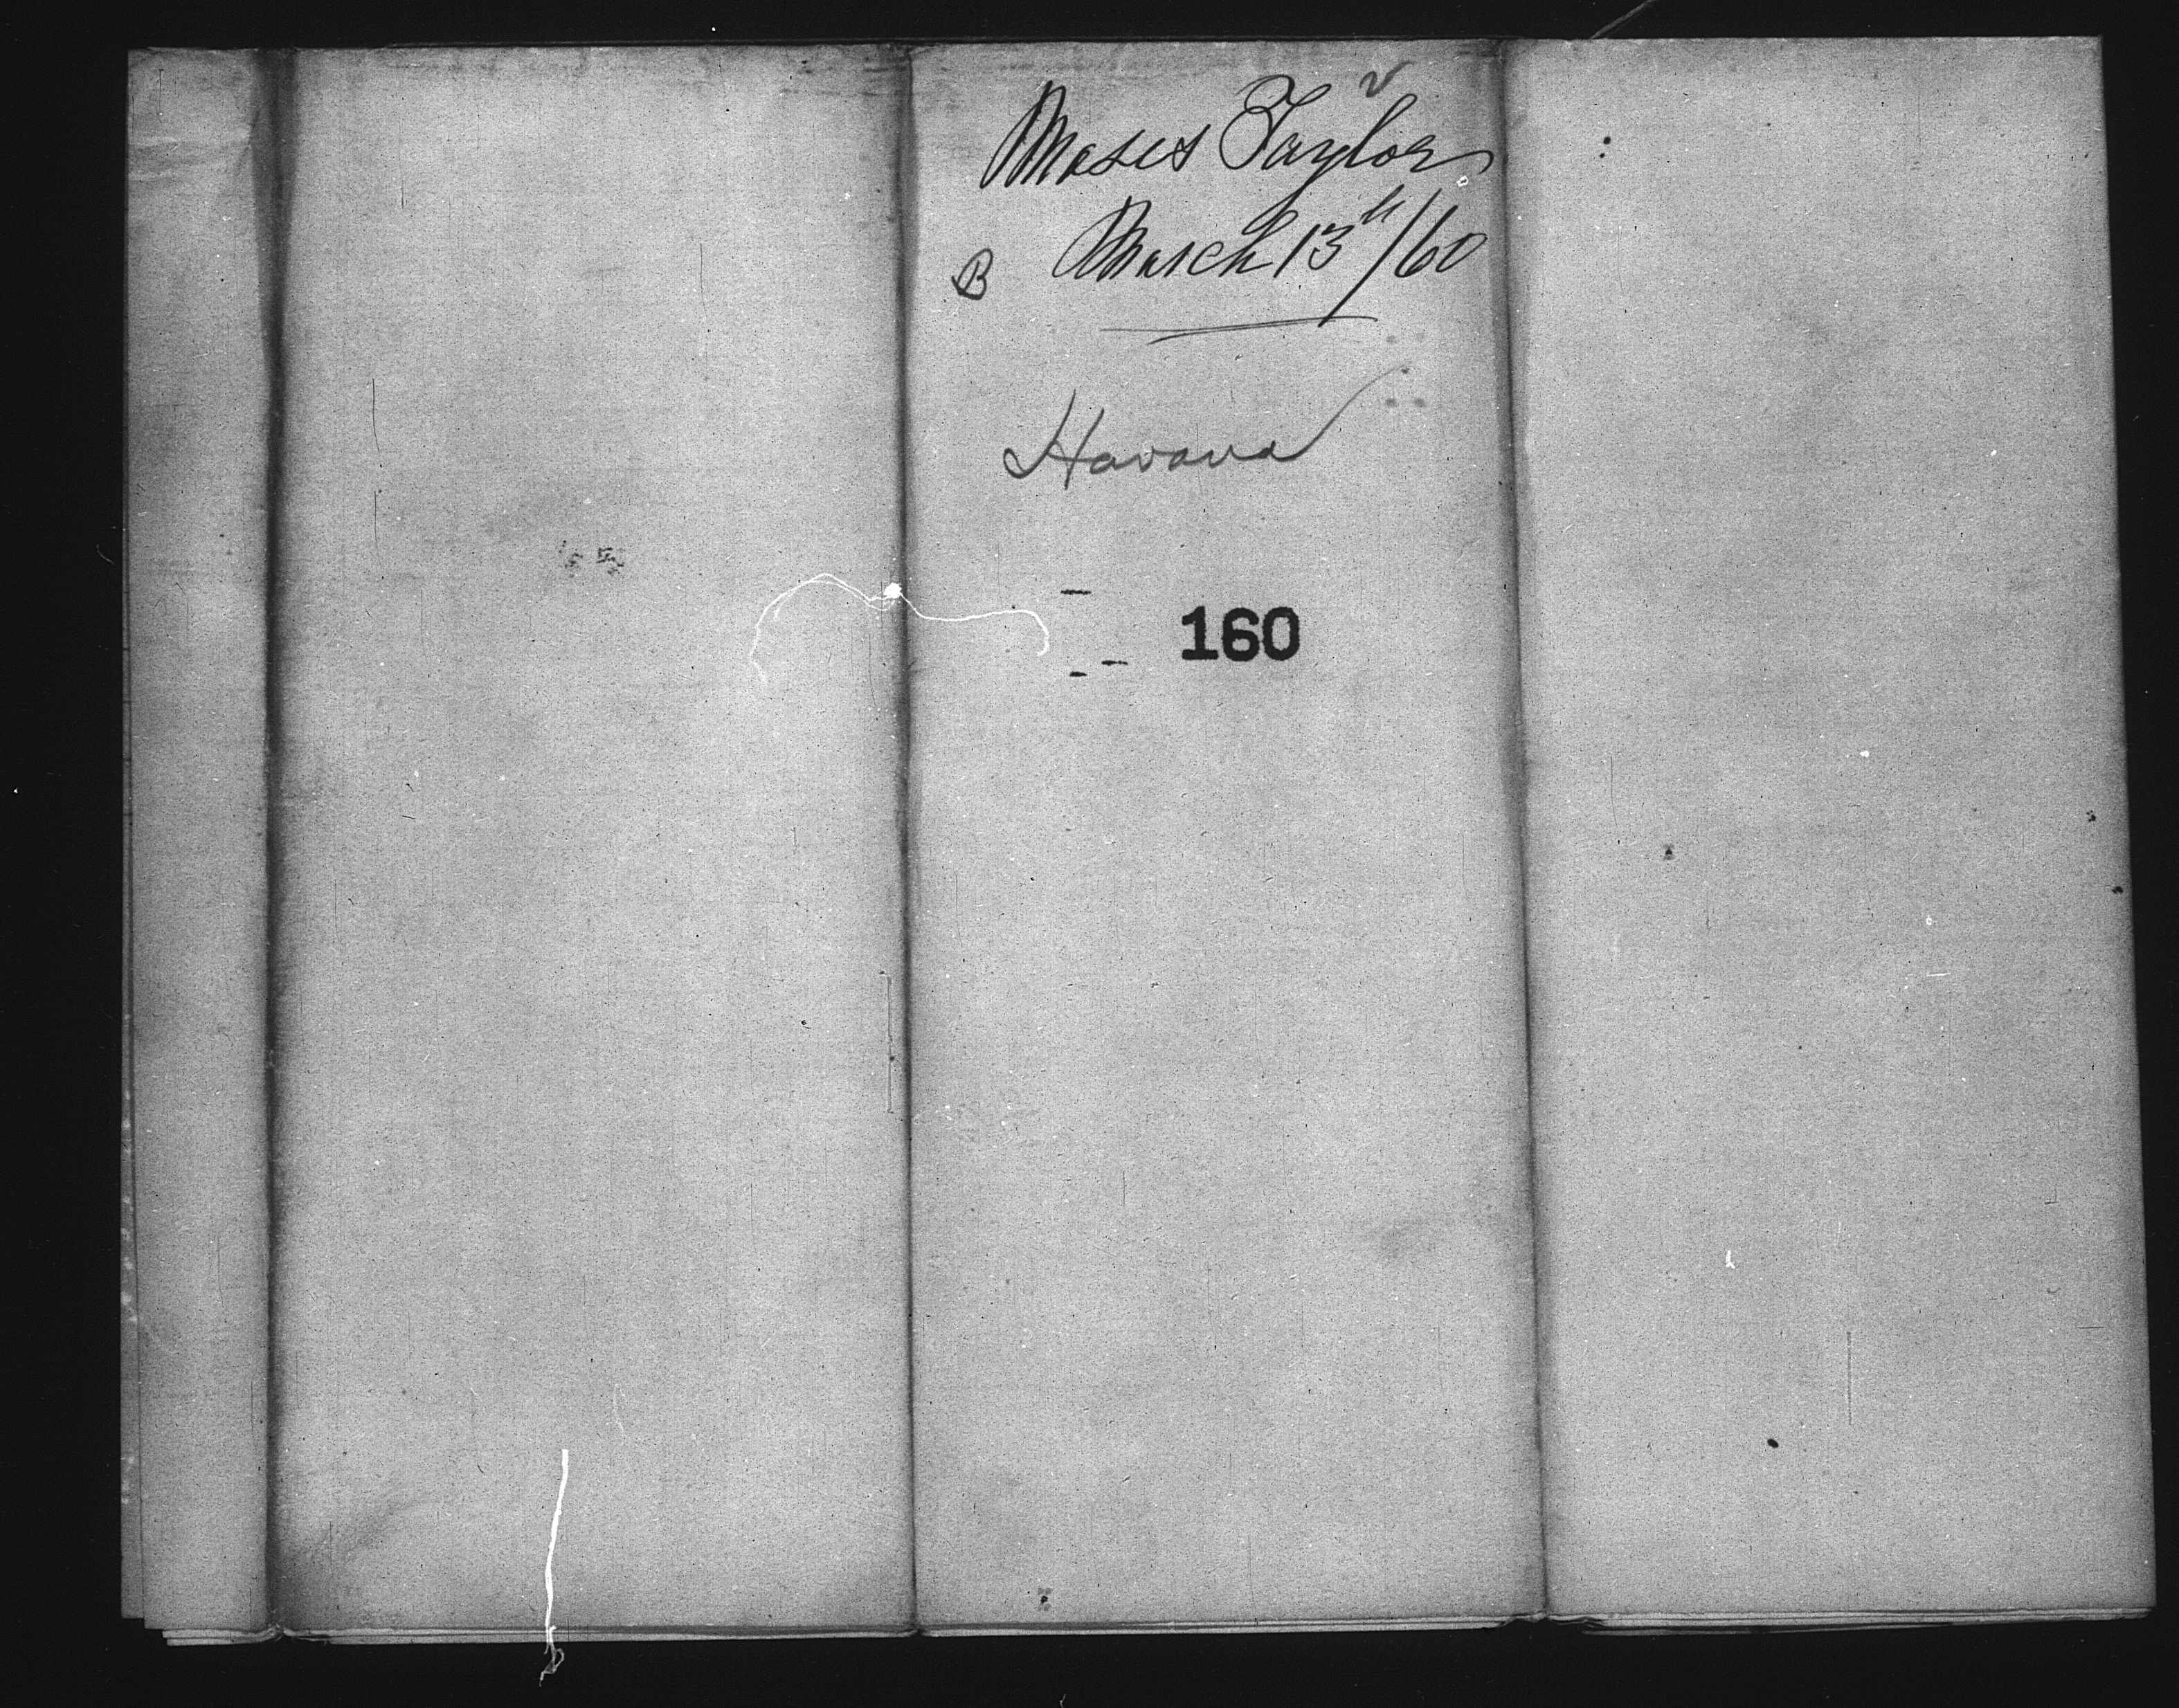 Moses Taylor
B March 13th/60
Havana
160